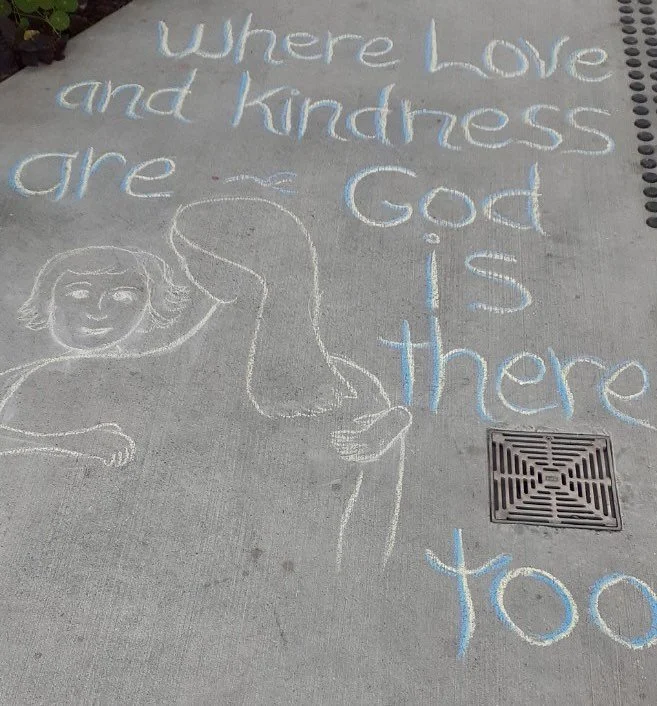 where Love
and kindness
are ~ God
is
there
too